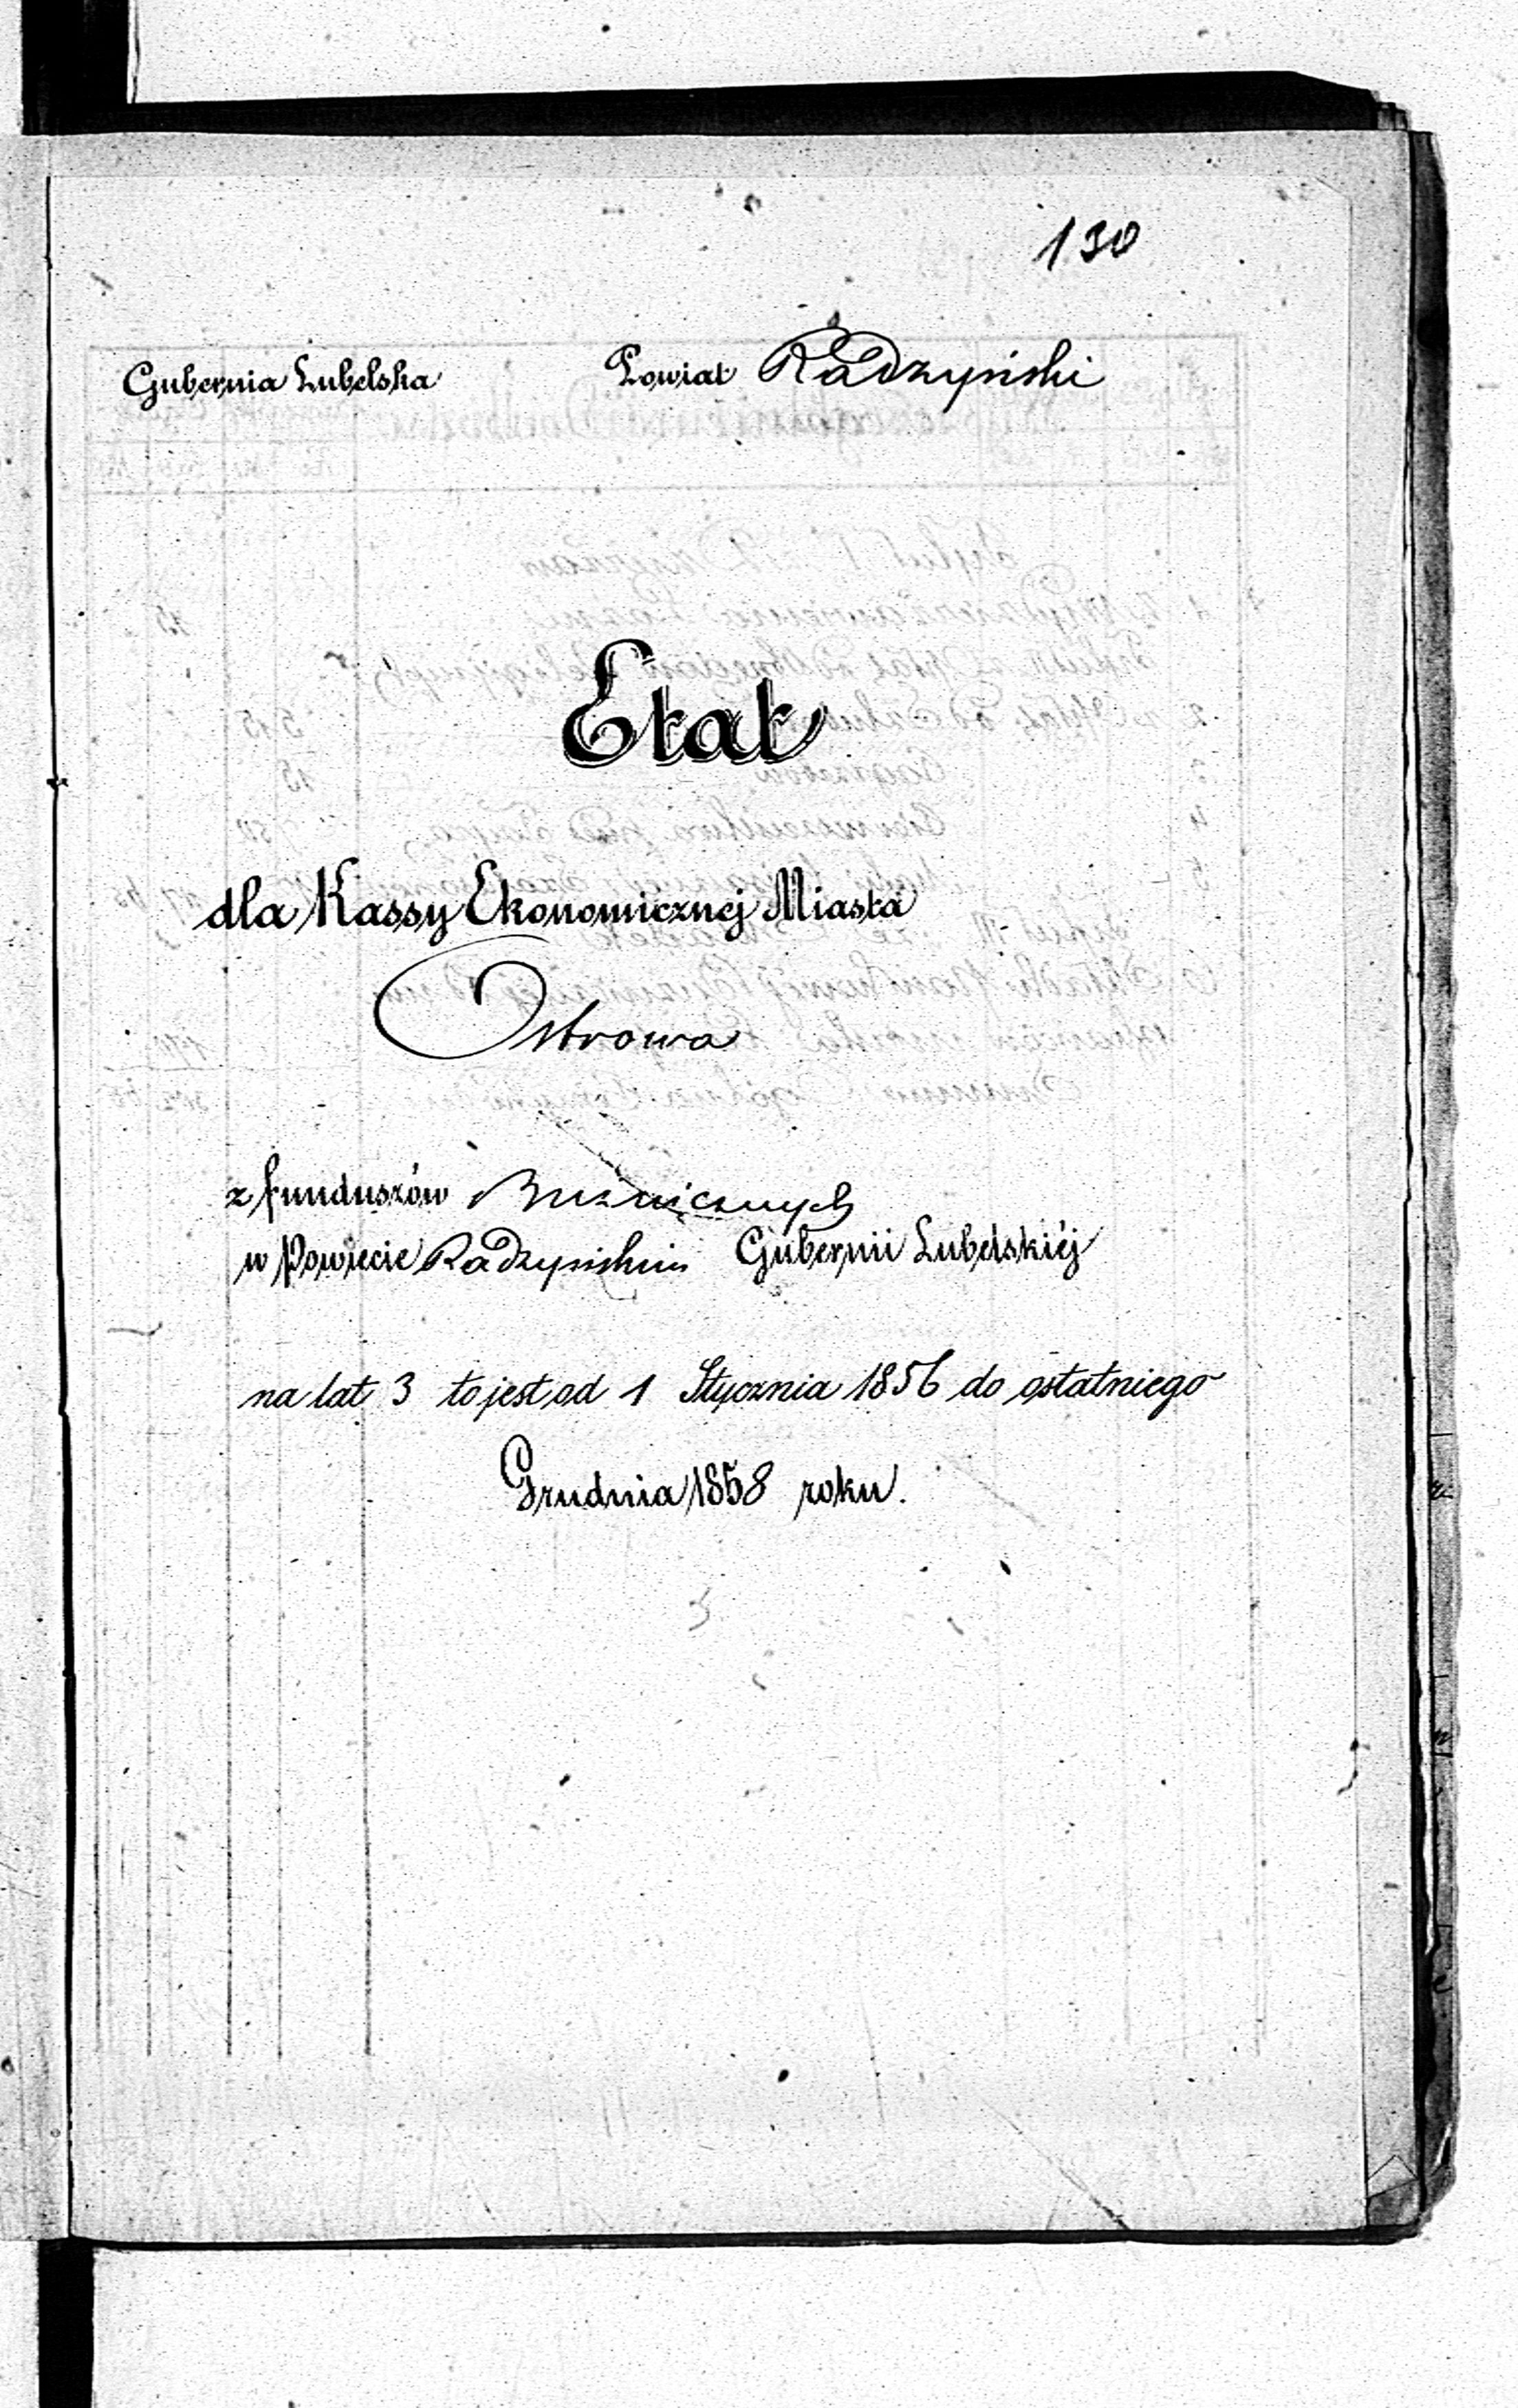 130
Gubernia Lubelska Powiat Radzyński
Etat
dla Kassy Ekonomicznej Miasta
Ostrowa
z funduszów Bużnicznych
w Powiecie Radzyńskim Gubernii Lubelskiéj
na lat 3 to jest od 1 Stycznia 1856 do ostatniego
Grudnia 1858 roku.